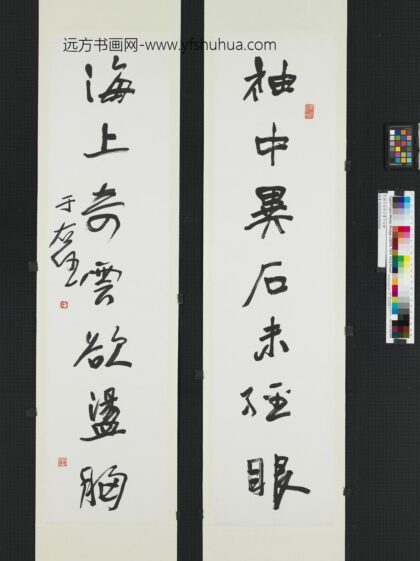 远方书画网-www.yfshuhua.com
袖中異石未経眼
海上奇雲欲盪胸
于右任